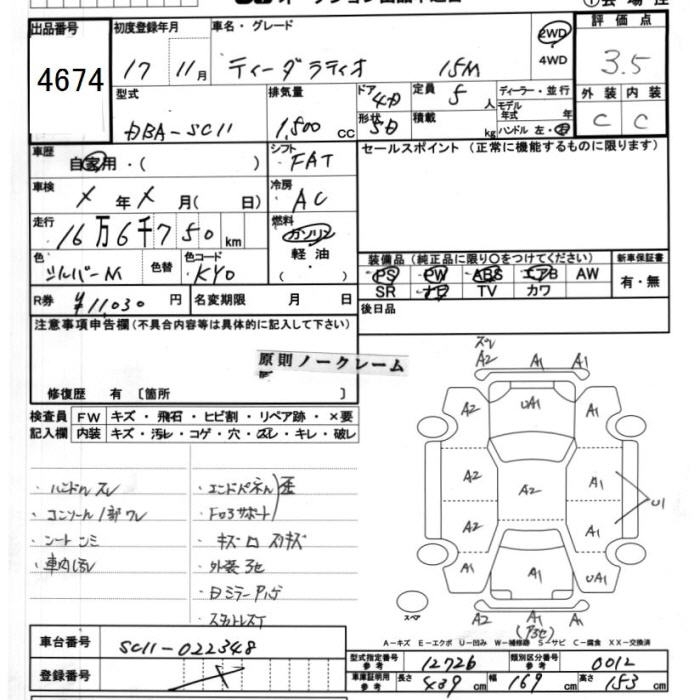 出品番号
4674
初度登録年月
17 11月
車名・グレード
ティーダラティオ 15M
2WD
4WD
評価点
3.5
外装 内装
C C
型式
DBA-SC11
排気量
1,500 cc
ドア
4D
形状
SD
定員
5 人
積載
kg
ディーラー・並行
モデル年式 年
ハンドル 左・右
車歴
自家用・( )
シフト
FAT
セールスポイント (正常に機能するものに限ります)
車検
X 年 X 月( 日)
冷房
AC
走行
16万6千750 km
燃料
ガソリン
軽油
( )
色
シルバーM
色替
色コード
KY0
装備品 (純正品に限り○をつけてください)
新車保証書
PS PW ABS エアB AW
SR ナビ TV カワ
有・無
R券
¥11,030 円
名変期限 月 日
後日品
注意事項申告欄 (不具合内容等は具体的に記入して下さい)
原則ノークレーム
修復歴 有 〔箇所 〕
検査員
記入欄
FW キズ・飛石・ヒビ割・リペア跡・×要
内装 キズ・汚レ・コゲ・穴・スレ・キレ・破レ
・ハンドルスレ
・コンソール1部ワレ
・シートシミ
・車内汚レ
・エンドパネル 歪
・Fロアサポート
・外装3セ
スレ
A2 A1 A1
A2 UA1 A1
A2 A2 A1 U1
A2 A1
A1 A1 UA1
A2 A1 A1
スペア
A-キズ E-エクボ U-凹み W-補修跡 S-サビ C-腐食 XX-交換済
車台番号
SC11-022348
登録番号
型式指定番号
参考
12726
類別区分番号
参考
0012
車庫証明用
参考
長さ 439 cm 幅 169 cm 高さ 153 cm